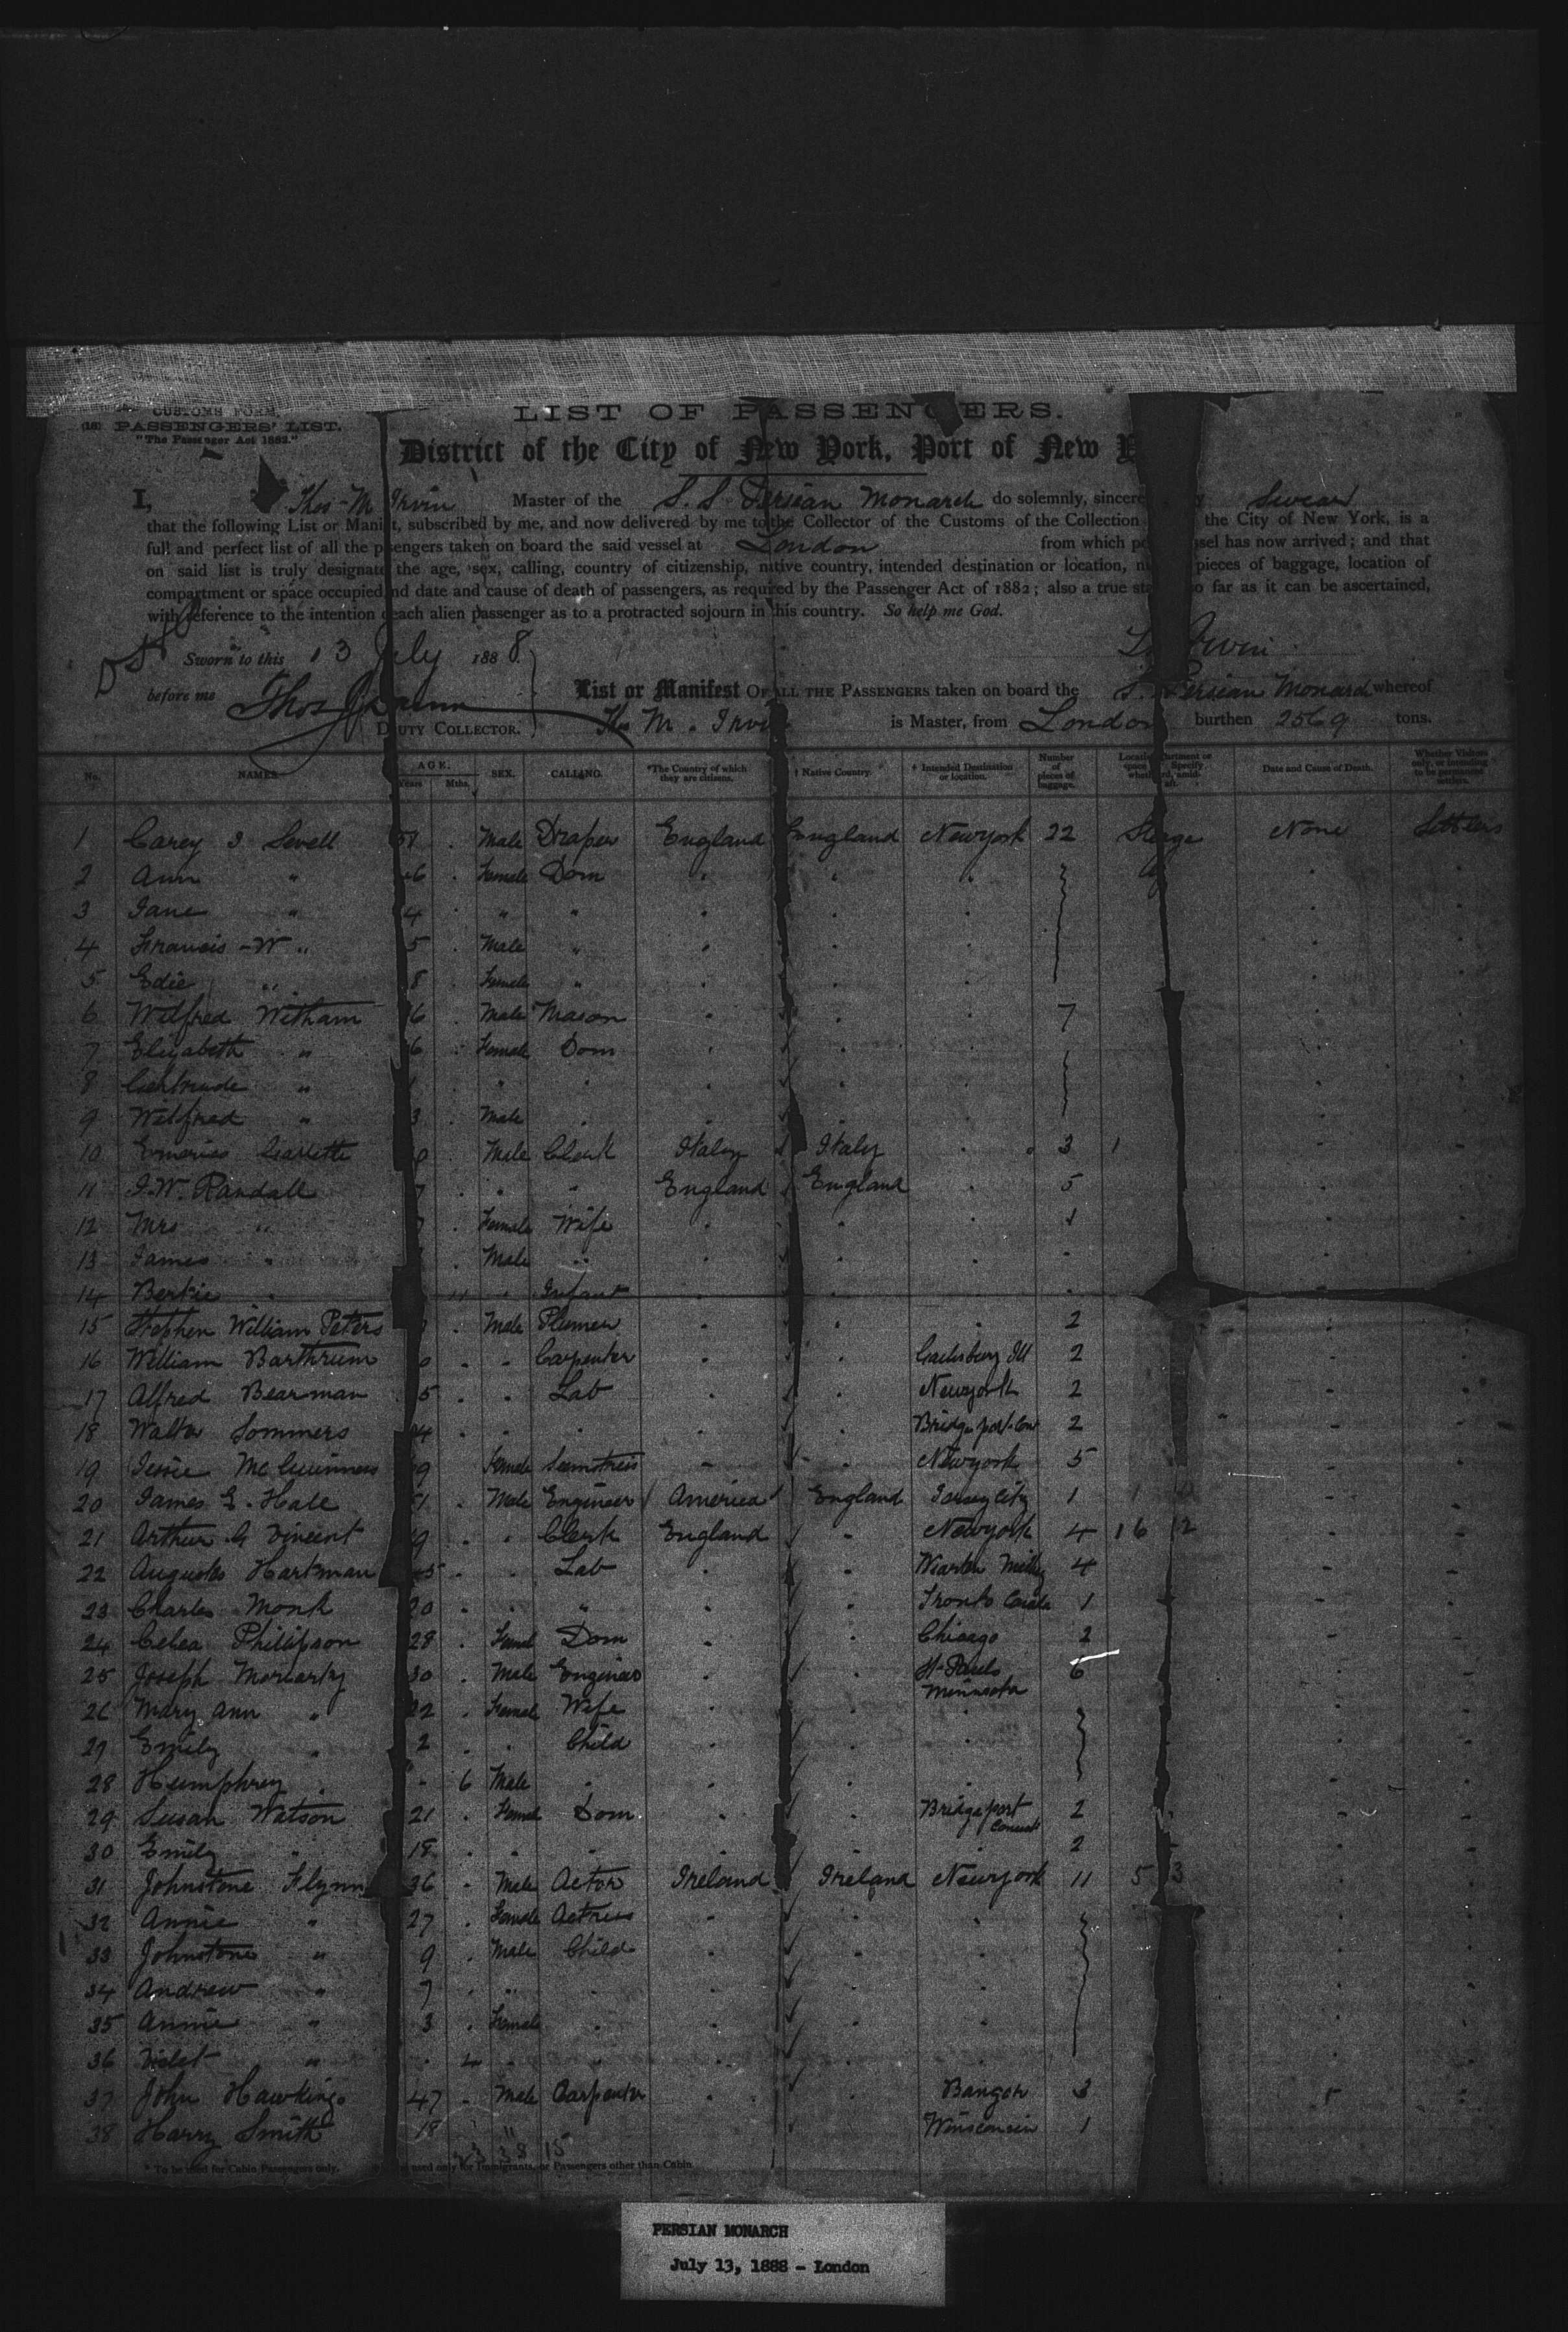 CUSTOMS FORM.
PASSENGERS' LIST.
"The Passenger Act 1882."
LIST OF PASSENGERS.
District of the City of New York, Port of New Y
I, Thos M Irvin Master of the S. S. Persian Monarch do solemnly, sincere y swear
that the following List or Mani t, subscribed by me, and now delivered by me to the Collector of the Customs of the Collection the City of New York, is a
full and perfect list of all the p sengers taken on board the said vessel at London from which p ssel has now arrived; and that
on said list is truly designate the age, sex, calling, country of citizenship, native country, intended destination or location, n pieces of baggage, location of
compartment or space occupied nd date and cause of death of passengers, as required by the Passenger Act of 1882; also a true sta so far as it can be ascertained,
with reference to the intention each alien passenger as to a protracted sojourn in this country. So help me God.
Irvin
Sworn to this 13 July 1888
before me Thos
D UTY COLLECTOR.
List or Manifest OF ALL THE PASSENGERS taken on board the S. Persian Monarch whereof
Thos M. Irvin is Master, from London burthen 2569 tons.
No. NAMES AGE. Years Mths. SEX. CALLING. *The Country of which they are citizens. † Native Country. † Intended Destination or location. Number of pieces of baggage. Date and Cause of Death. Whether Visitors only, or intending to be permanent settlers.
1 Carey J Sevell Male Draper England England Newyork 22 None Settlers
2 Ann " 6 . Female Dom . . .
3 Jane " 4 . " " . .
4 Francis W " 5 . Male " . .
5 Edie " 8 . Female " . .
6 Wilfred Witham 6 . Male Mason . . . 7
7 Elizabeth " 6 . Female Dom . . .
8 Gertrude " . " . . .
9 Wilfred " 3 . Male . . .
10 Male Clerk Italy Italy . 3 1
11 J. W. Randall 7 . " " England England . 5
12 Mrs " . Female Wife . . . 1
13 James " . Male " . . .
14 Bertie " 11 . Infant . . .
15 Stephen William Peters . Male Plumer . . . 2
16 William Barthrum 0 . . Carpenter . . 2
17 Alfred Bearman 5 . . Lab . . Newyork 2
18 Walter Sommers 4 . . . . . Bridgeport Con 2
19 Jessie McGuinness 9 Female Seemstress . . Newyork 5
20 James E. Hale 1 . Male Engineer America England Jersey City 1
21 Arthur G Vincent 9 . Clerk England " Newyork 4 16 12
22 Augustus Hartman 5 . . Lab . . 4
23 Charles Monk 20 . . " . . 1
24 Celea Philipson 28 . Femal Dom . . Chicago 2
25 Joseph Moriarty 30 . Male Engineer . . St Pauls Minnesota 6
26 Mary Ann " 22 . Female Wife . . .
27 Emily " 2 . . Child . . .
28 Humphrey . - 6 Male . . . .
29 Susan Watson 21 . Femal Dom . . Bridgeport Connect 2
30 Emily " 18 . " " . . 2
31 Johnstone Flynn 36 - Male Actor Ireland Ireland Newyork 11 5 3
32 Annie " 27 . Female Actress . . .
33 Johnstone " 9 . Male Child . . .
34 Andrew " 7 . " . . .
35 Annie " 3 . Female . . . .
36 Violet " . 4 . " . . .
37 John Hawkings 47 . Male Carpenter . . Bangor 3
38 Harry Smith 18 " Winsconsin 1
23 28 15
* To be used for Cabin Passengers only. used only for Immigrants, or Passengers other than Cabin.
PERSIAN MONARCH
July 13, 1888 - London